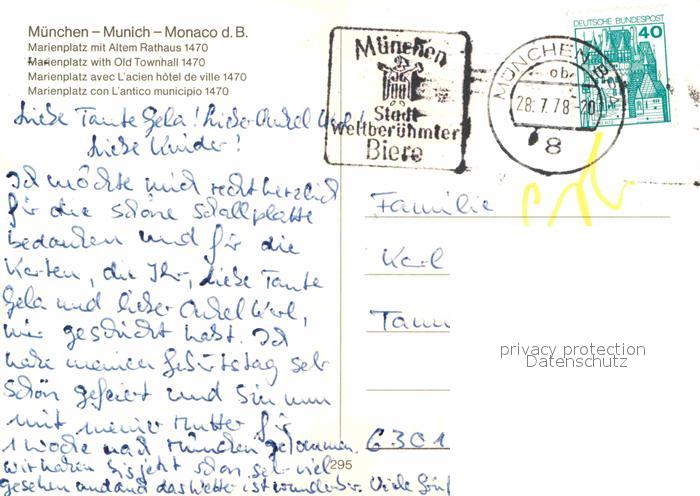 München – Munich – Monaco d. B.
Marienplatz mit Altem Rathaus 1470
Marienplatz with Old Townhall 1470
Marienplatz avec L'acien hôtel de ville 1470
Marienplatz con L'antico municipio 1470
München
Stadt
weltberühmter
Biere
MÜNCHEN
ob
28.7.78-20
8
DEUTSCHE BUNDESPOST
40
Liebe Tante Gela! Lieber Onkel Karl!
Liebe Kinder!
Ich möchte mich recht herzlich
für die schöne Schallplatte
bedanken und für die
Karten, die Ihr, liebe Tante
Gela und lieber Onkel Karl,
mir geschickt habt. Ich
habe meinen Geburtstag sehr
schön gefeiert und bin nun
mit meiner Mutter für
1 Woche nach München gekommen.
Wir haben bis jetzt schon sehr viel
gesehen und das Wetter ist wunderbar. Viele
Familie
Karl
6301
295
privacy protection
Datenschutz